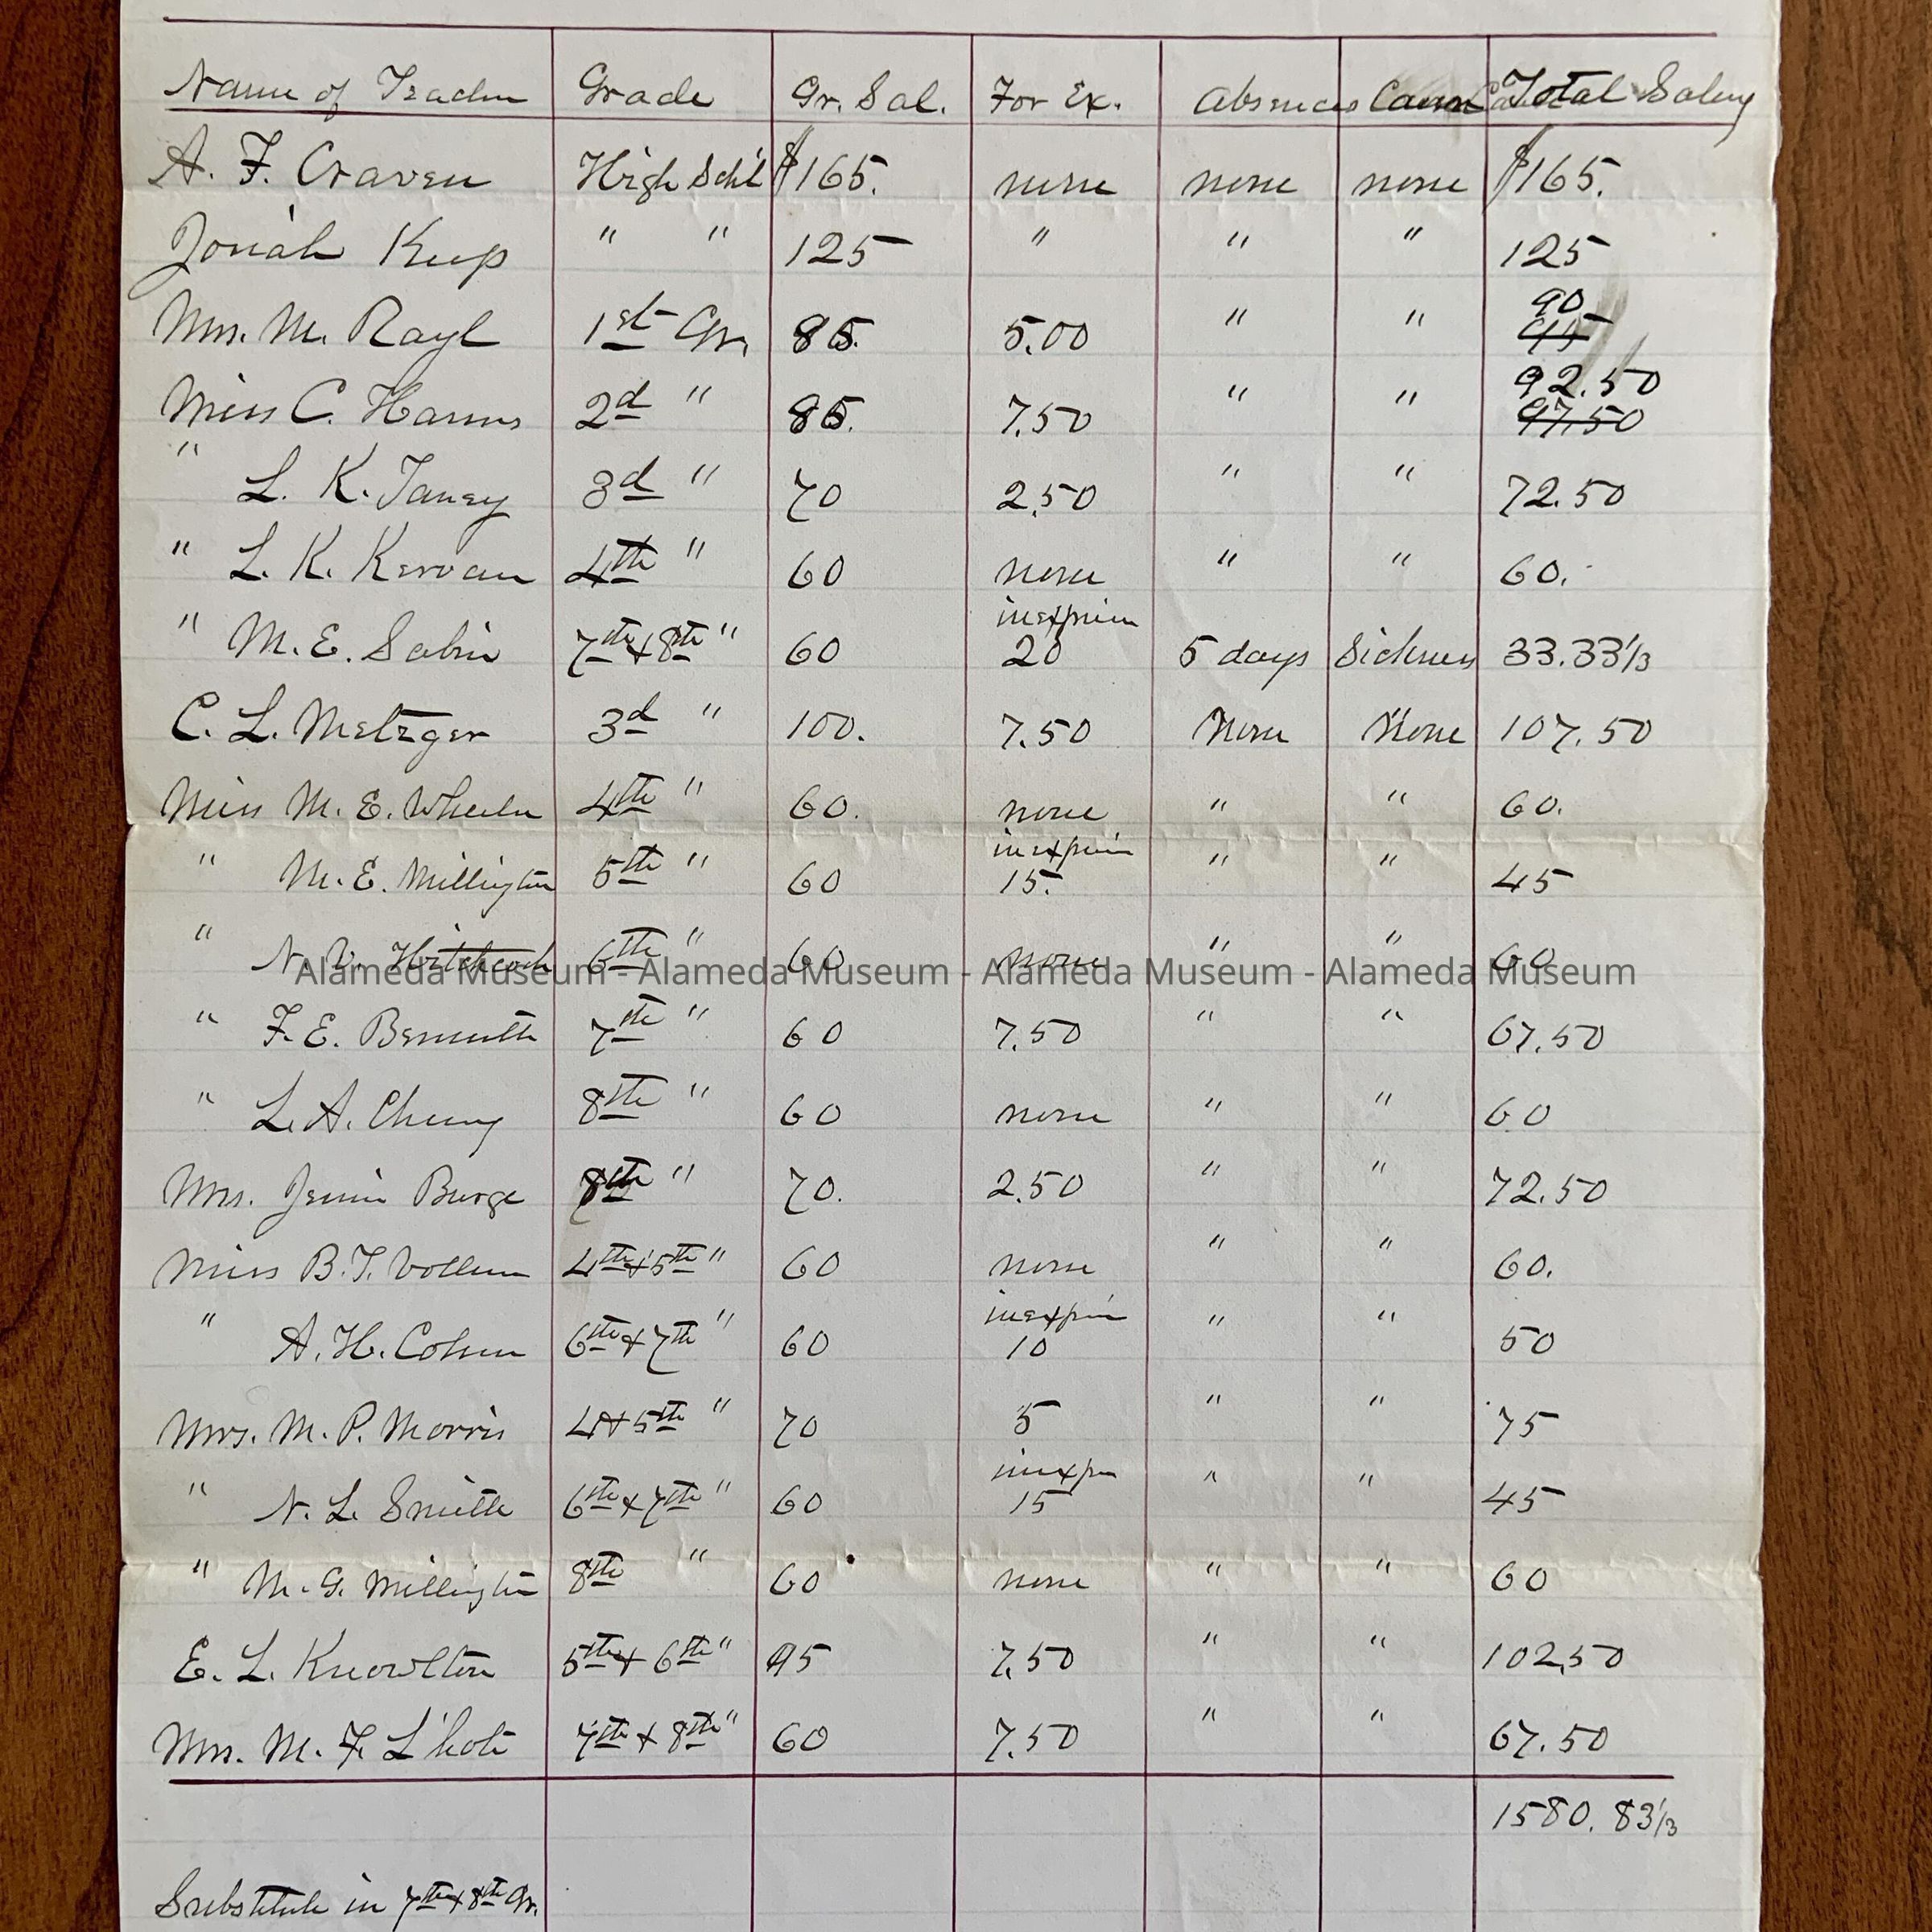 Name of Teacher Grade Gr. Sal. For Ex. Absences Cause Total Salary
A. F. Craven High Sch'l $165. none none none $165.
Josiah Keep " " 125 " " " 125
Mrs. M. Rayl 1st Gr. 85. 5.00 " " 90 95
Miss C. Harms 2d " 85. 7.50 " " 92.50 97.50
" L. K. Taney 3d " 70 2.50 " " 72.50
" L. K. Kervan 4th " 60 none " " 60.
" M. E. Sabin 7th + 8th " 60 inexperien 20 5 days Sickness 33.33 1/3
C. L. Metzger 3d " 100. 7.50 None None 107.50
Miss M. E. Wheeler 4th " 60. none " " 60.
" M. E. Millington 5th " 60 inexperien 15. " " 45
" N. V. Hitchcock 6th " 60 none " " 60
Alameda Museum - Alameda Museum - Alameda Museum - Alameda Museum
" F. E. Bermuth 7th " 60 7.50 " " 67.50
" L. A. Cheney 8th " 60 none " " 60
Mrs. Jennie Burge 8th " 70. 2.50 " " 72.50
Miss B. T. Vollum 4th + 5th " 60 none " " 60.
" A. H. Cohen 6th + 7th " 60 inexperien 10 " " 50
Mrs. M. P. Morris 4 + 5th " 70 5 " " 75
" N. L. Smith 6th + 7th " 60 inexper 15 " " 45
" M. G. Millington 8th " 60 none " " 60
E. L. Knowlton 5th + 6th " 95 7.50 " " 102.50
Mrs. M. F. L'hote 7th + 8th " 60 7.50 " " 67.50
1580.83 1/3
Substitute in 7th + 8th Gr.